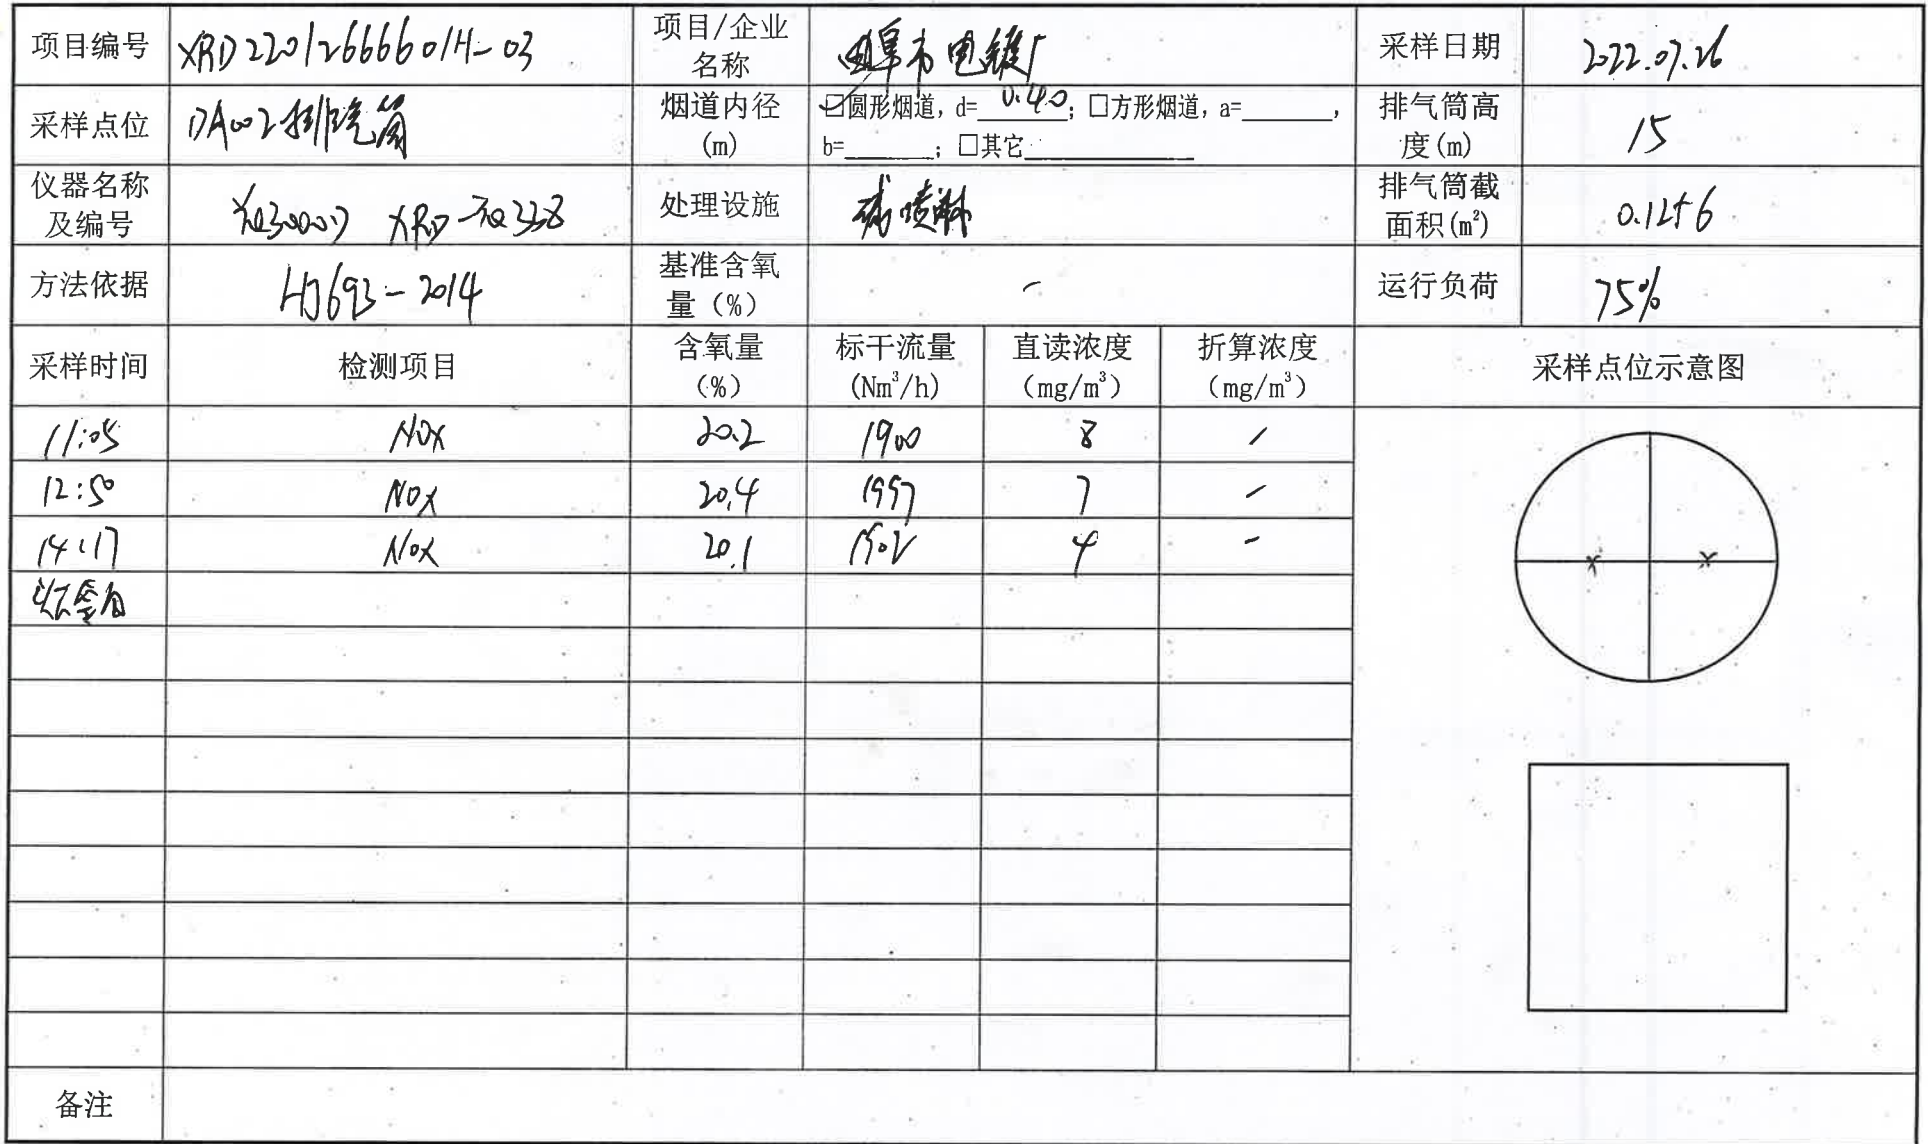 项目编号 XRD220126666014-03 项目/企业名称 曲阜市电镀厂 采样日期 2022.07.26
采样点位 DA002排气筒 烟道内径(m) ☑圆形烟道, d= 0.40 ; □方形烟道, a=______,
b=______; □其它______ 排气筒高度(m) 15
仪器名称及编号 XRD- 338 处理设施 碱喷淋 排气筒截面积(m²) 0.1256
方法依据 HJ693-2014 基准含氧量(%) - 运行负荷 75%
采样时间 检测项目 含氧量(%) 标干流量(Nm³/h) 直读浓度(mg/m³) 折算浓度(mg/m³) 采样点位示意图
11:05 NOX 20.2 1900 8 /
12:50 NOX 20.4 1997 7 /
14:17 NOX 20.1 1902 4 -
备注